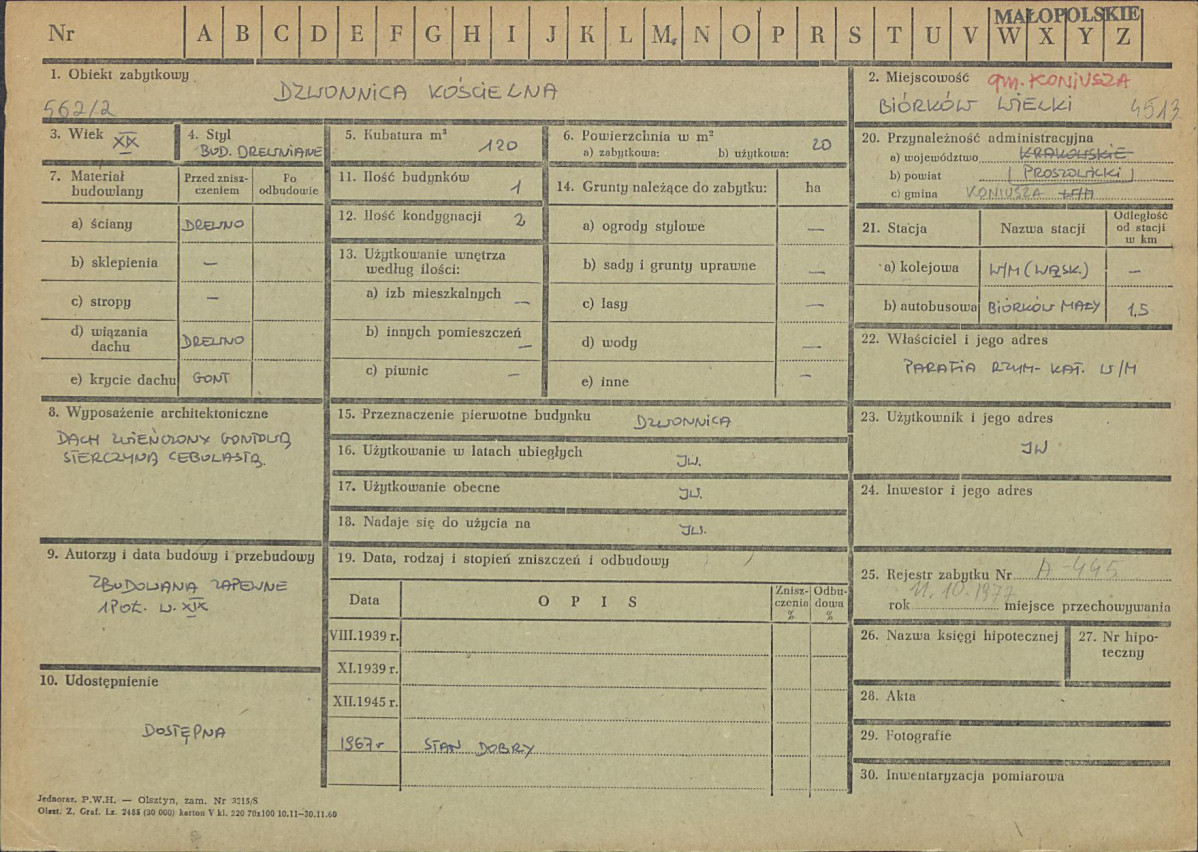 MAŁOPOLSKIE
Nr A B C D E F G H I J K L M N O P R S T U V W X Y Z
1. Obiekt zabytkowy
DZWONNICA KOŚCIELNA
562/2
2. Miejscowość gm. KONIUSZA
BIÓRKÓW WIELKI 4513
3. Wiek XIX
4. Styl
BUD. DREWNIANE
5. Kubatura m³
120
6. Powierzchnia w m²
a) zabytkowa: b) użytkowa: 20
7. Materiał budowlany
Przed zniszczeniem
Po odbudowie
a) ściany DREWNO
b) sklepienia —
c) stropy —
d) wiązania dachu DREWNO
e) krycie dachu GONT
8. Wyposażenie architektoniczne
DACH ZWIEŃCZONY GONTOWĄ
STERCZYNĄ CEBULASTĄ.
9. Autorzy i data budowy i przebudowy
ZBUDOWANA ZAPEWNE
1 POŁ. W. XIX
10. Udostępnienie
DOSTĘPNA
11. Ilość budynków 1
12. Ilość kondygnacji 2
13. Użytkowanie wnętrza
według ilości:
a) izb mieszkalnych —
b) innych pomieszczeń —
c) piwnic —
14. Grunty należące do zabytku: ha
a) ogrody stylowe —
b) sady i grunty uprawne —
c) lasy —
d) wody —
e) inne —
15. Przeznaczenie pierwotne budynku DZWONNICA
16. Użytkowanie w latach ubiegłych JW.
17. Użytkowanie obecne JW.
18. Nadaje się do użycia na JW.
19. Data, rodzaj i stopień zniszczeń i odbudowy
Data OPIS Zniszczenia % Odbudowa %
VIII.1939 r.
XI.1939 r.
XII.1945 r.
1967 r STAN DOBRY
20. Przynależność administracyjna
a) województwo KRAKOWSKIE
b) powiat PROSZOWICKI
c) gmina KONIUSZA W/M
21. Stacja
Nazwa stacji
Odległość
od stacji
w km
a) kolejowa W/M (WĄSK.) —
b) autobusowa BIÓRKÓW MAŁY 1,5
22. Właściciel i jego adres
PARAFIA RZYM-KAT. W/M
23. Użytkownik i jego adres
JW
24. Inwestor i jego adres
25. Rejestr zabytku Nr A-445
rok 11.10.1977 miejsce przechowywania
26. Nazwa księgi hipotecznej
27. Nr hipoteczny
28. Akta
29. Fotografie
30. Inwentaryzacja pomiarowa
Jednoraz. P.W.H. — Olsztyn, zam. Nr 3215/S
Olszt. Z. Graf. Lz. 2485 (30 000) karton V kl. 220 70x100 10.11—30.11.60